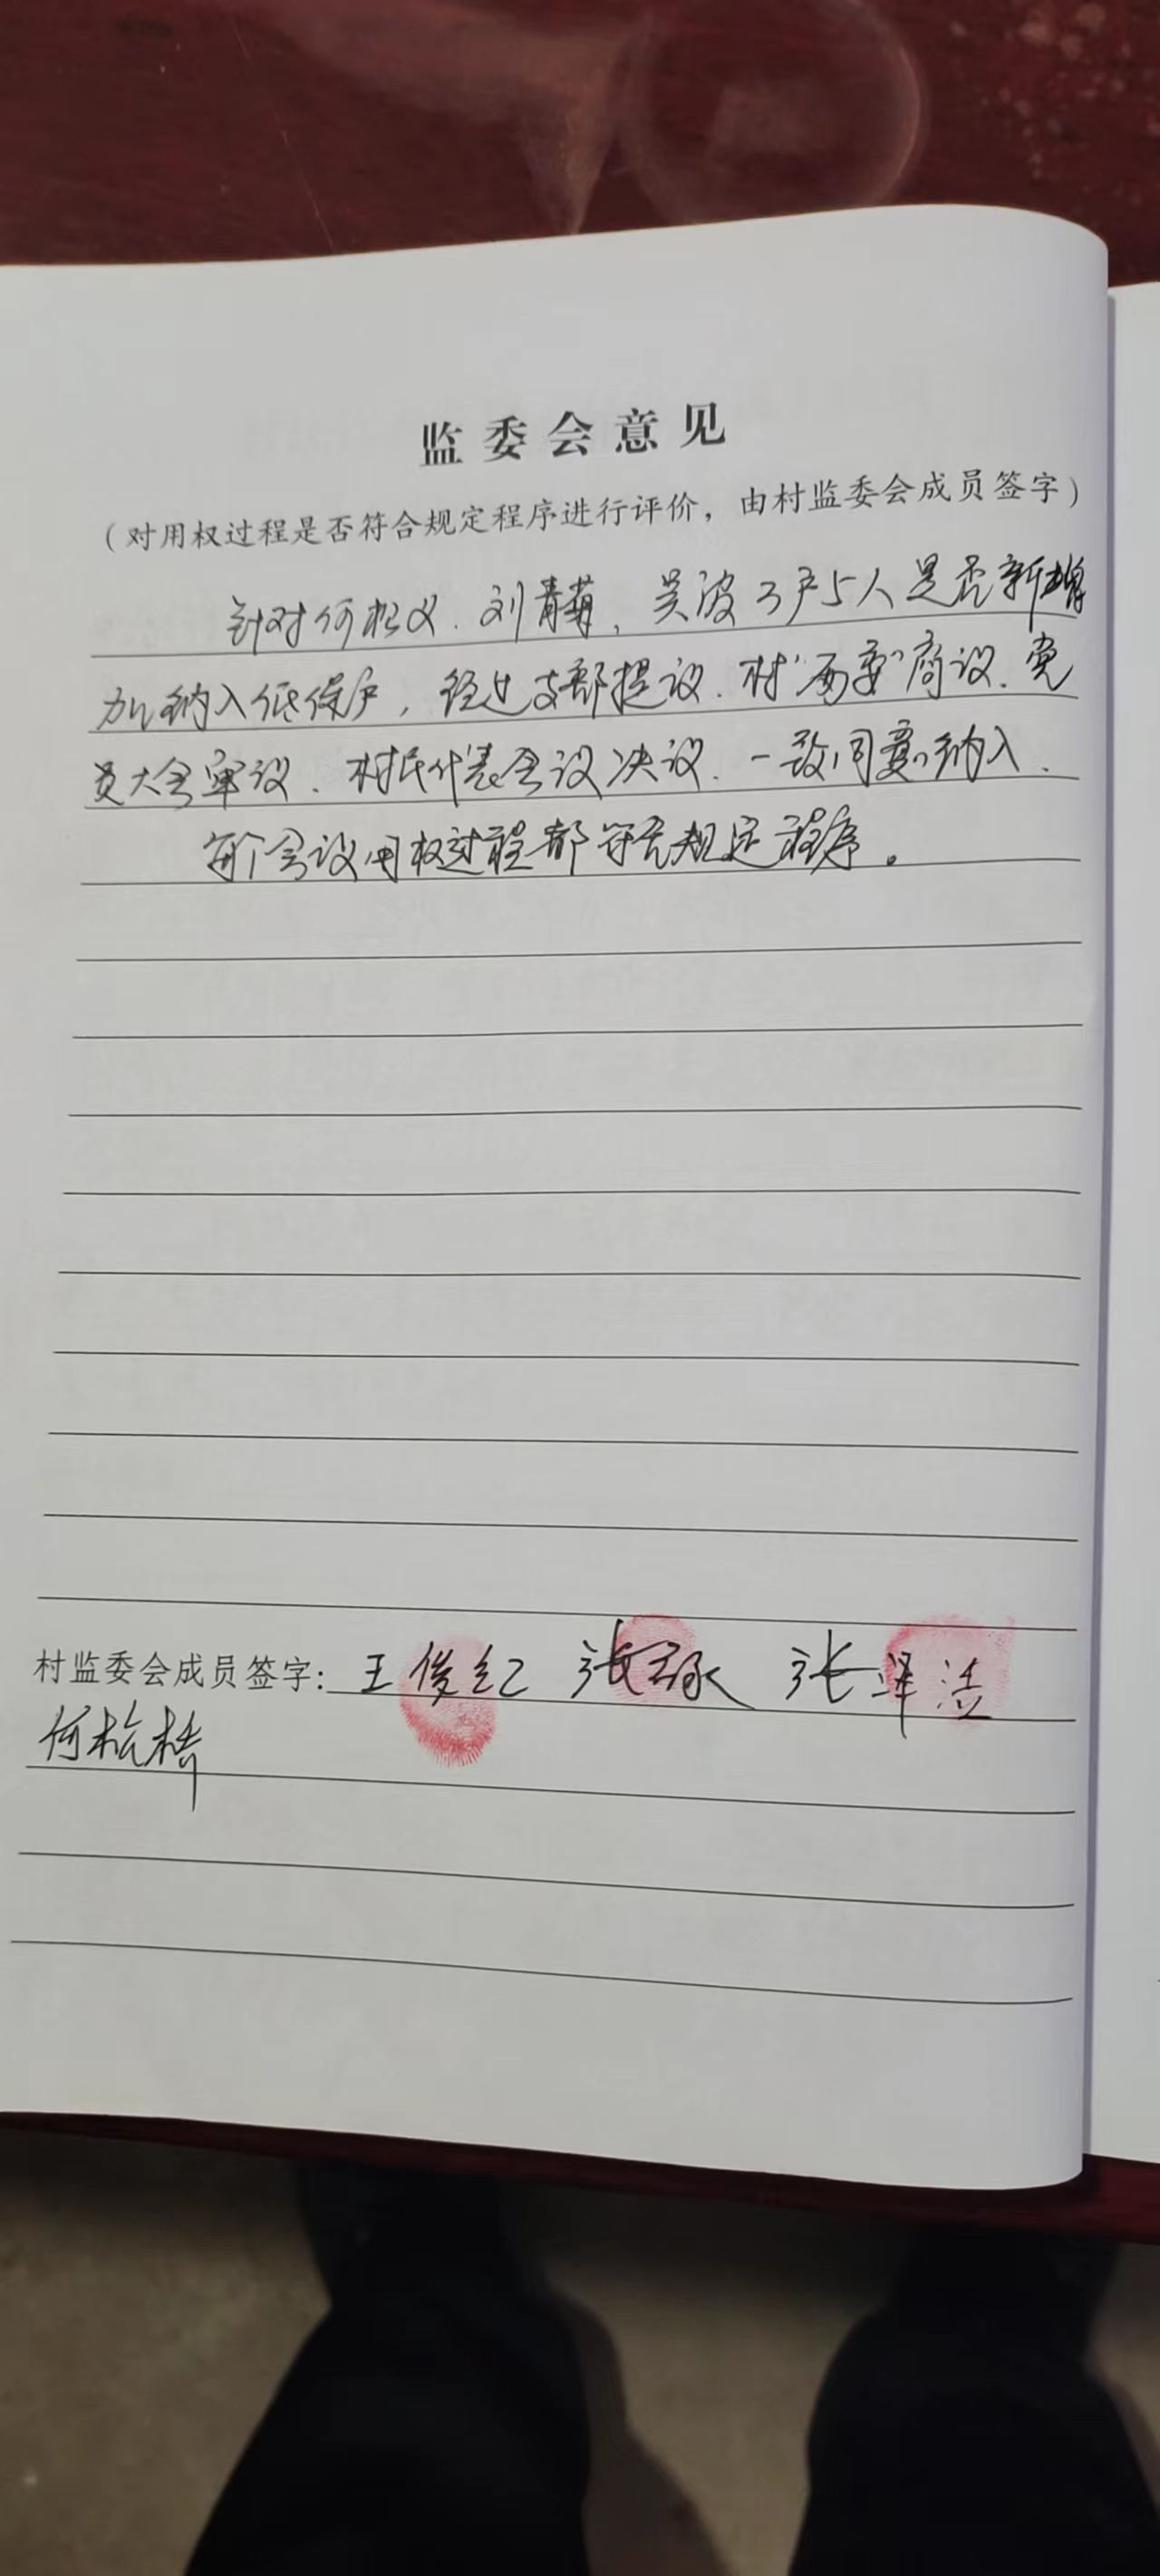 监委会意见
（对用权过程是否符合规定程序进行评价，由村监委会成员签字）
针对何松义、刘青菊、吴波3户5人是否新增
加纳入低保户，经过支部提议、村“两委”商议、党
员大会审议、村民代表会议决议、一致同意纳入、
每个会议用权过程都符合规定程序。
村监委会成员签字：王俊红 张 张泽洁
何松桥